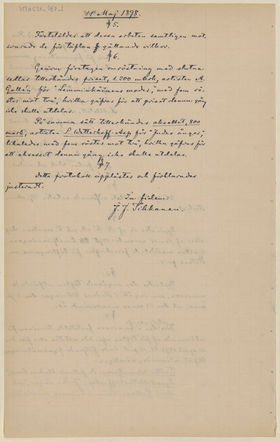 Maj 1898.
§ 5.
Fastställdes att dessa arbeten samtligen mot-
svarade de för täflan gällande vilkor.
§ 6.
Genom företagen omröstning med slutna
sedlar tillerkändes priset, 1,500 mark, artisten A.
Gallén för "Lemminkäinens moder," med fem rös-
ter mot två, hvilka gåfvos för att priset denna gång
icke skulle utdelas.
På samma sätt tillerkändes accessit, 800
mark, artisten L. Wetterhoff-Asp för "Judas ånger,"
likaledes med fem röster mot två, hvilka gåfvos för
att accessit denna gång icke skulle utdelas.
§ 7.
Detta protokoll upplästes och förklarades
justeradt.
In fidem:
J. J. Tikkanen.